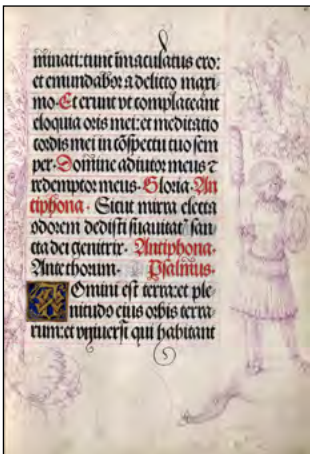 minati: tunc imaculatus ero:
et emundabor a delicto maxi
mo. Et erunt vt complaceant
eloquia oris mei: et meditatio
cordis mei in cōspectu tuo sem
per. Domine adiutor meus ⁊
redemptor meus. Gloria. An
tiphona. Sicut mirra electa
odorem dedisti suauitat̄ san
cta dei genitrix. Antiphona.
Ante thorum. Psalmus.
Domini est terra: et ple
nitudo eius orbis terra
rum: et vniuersi qui habitant